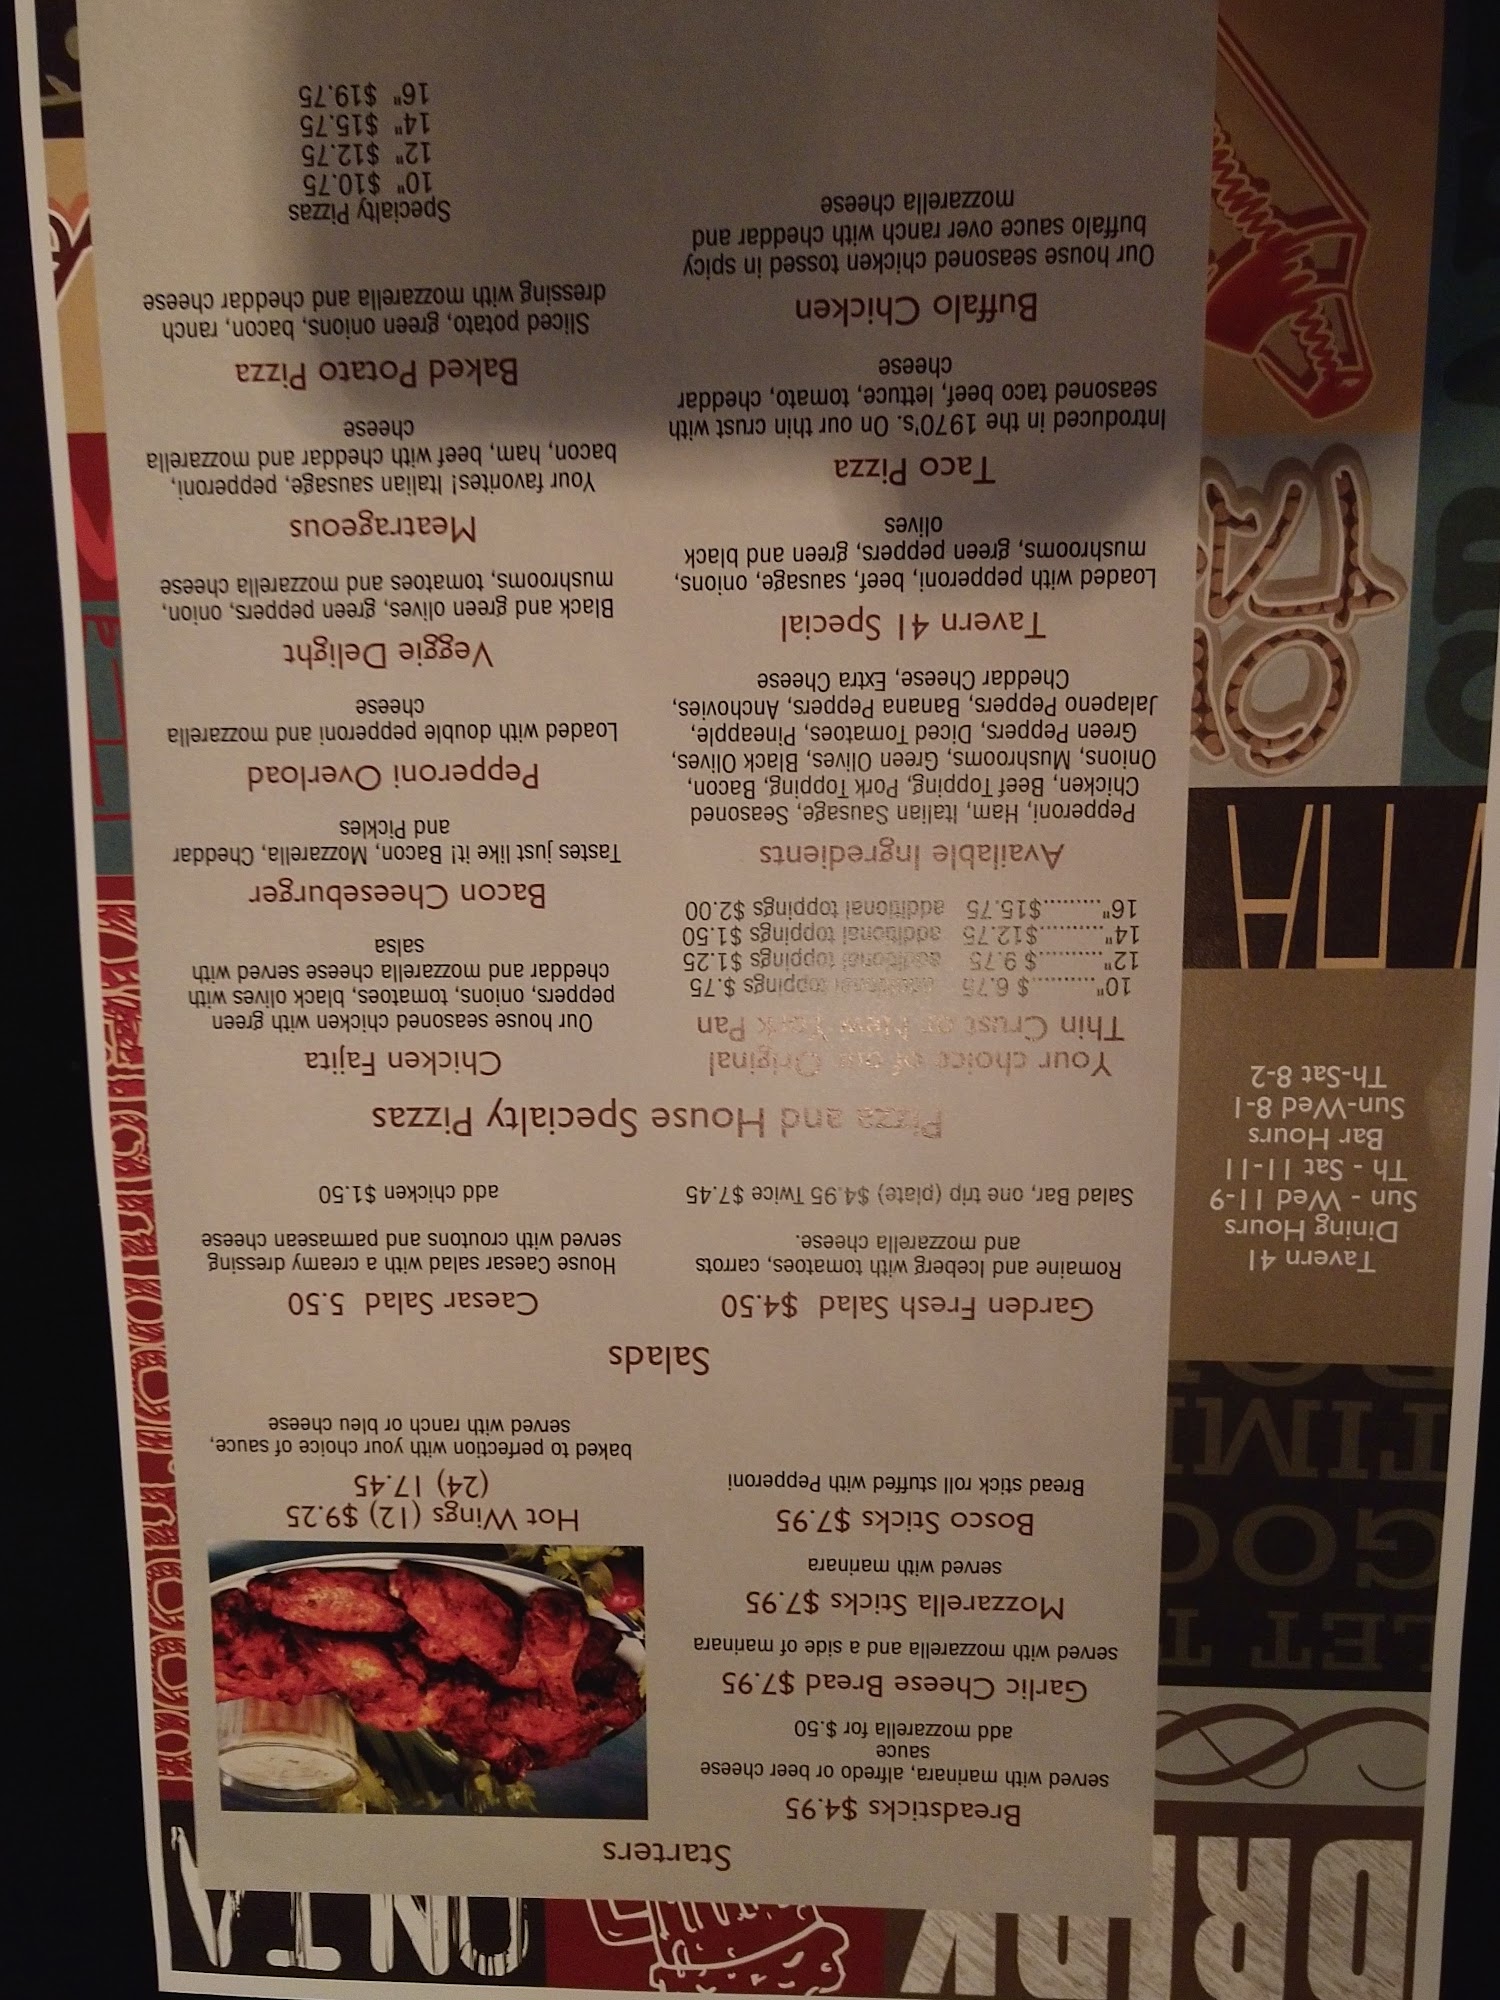 DRINK
ONTA
Starters
Breadsticks $4.95
served with marinara, alfredo or beer cheese
sauce
add mozzarella for $.50
Garlic Cheese Bread $7.95
served with mozzarella and a side of marinara
Mozzarella Sticks $7.95
served with marinara
Bosco Sticks $7.95
Bread stick roll stuffed with Pepperoni
Hot Wings (12) $9.25
(24) 17.45
baked to perfection with your choice of sauce,
served with ranch or bleu cheese
Salads
Garden Fresh Salad $4.50
Romaine and Iceberg with tomatoes, carrots
and mozzarella cheese.
Salad Bar, one trip (plate) $4.95 Twice $7.45
Caesar Salad 5.50
House Caesar salad with a creamy dressing
served with croutons and parmasean cheese
add chicken $1.50
Pizza and House Specialty Pizzas
Your choice of our Original
Thin Crust or New York Pan
10"..........$ 6.75 additional toppings $.75
12"..........$ 9.75 additional toppings $1.25
14"..........$12.75 additional toppings $1.50
16".........$15.75 additional toppings $2.00
Available Ingredients
Pepperoni, Ham, Italian Sausage, Seasoned
Chicken, Beef Topping, Pork Topping, Bacon,
Onions, Mushrooms, Green Olives, Black Olives,
Green Peppers, Diced Tomatoes, Pineapple,
Jalapeno Peppers, Banana Peppers, Anchovies,
Cheddar Cheese, Extra Cheese
Tavern 41 Special
Loaded with pepperoni, beef, sausage, onions,
mushrooms, green peppers, green and black
olives
Taco Pizza
Introduced in the 1970's. On our thin crust with
seasoned taco beef, lettuce, tomato, cheddar
cheese
Buffalo Chicken
Our house seasoned chicken tossed in spicy
buffalo sauce over ranch with cheddar and
mozzarella cheese
Chicken Fajita
Our house seasoned chicken with green
peppers, onions, tomatoes, black olives with
cheddar and mozzarella cheese served with
salsa
Bacon Cheeseburger
Tastes just like it! Bacon, Mozzarella, Cheddar
and Pickles
Pepperoni Overload
Loaded with double pepperoni and mozzarella
cheese
Veggie Delight
Black and green olives, green peppers, onion,
mushrooms, tomatoes and mozzarella cheese
Meatrageous
Your favorites! Italian sausage, pepperoni,
bacon, ham, beef with cheddar and mozzarella
cheese
Baked Potato Pizza
Sliced potato, green onions, bacon, ranch
dressing with mozzarella and cheddar cheese
Specialty Pizzas
10" $10.75
12" $12.75
14" $15.75
16" $19.75
LET T
GOO
TIME
Tavern 41
Dining Hours
Sun - Wed 11-9
Th - Sat 11-11
Bar Hours
Sun-Wed 8-1
Th-Sat 8-2